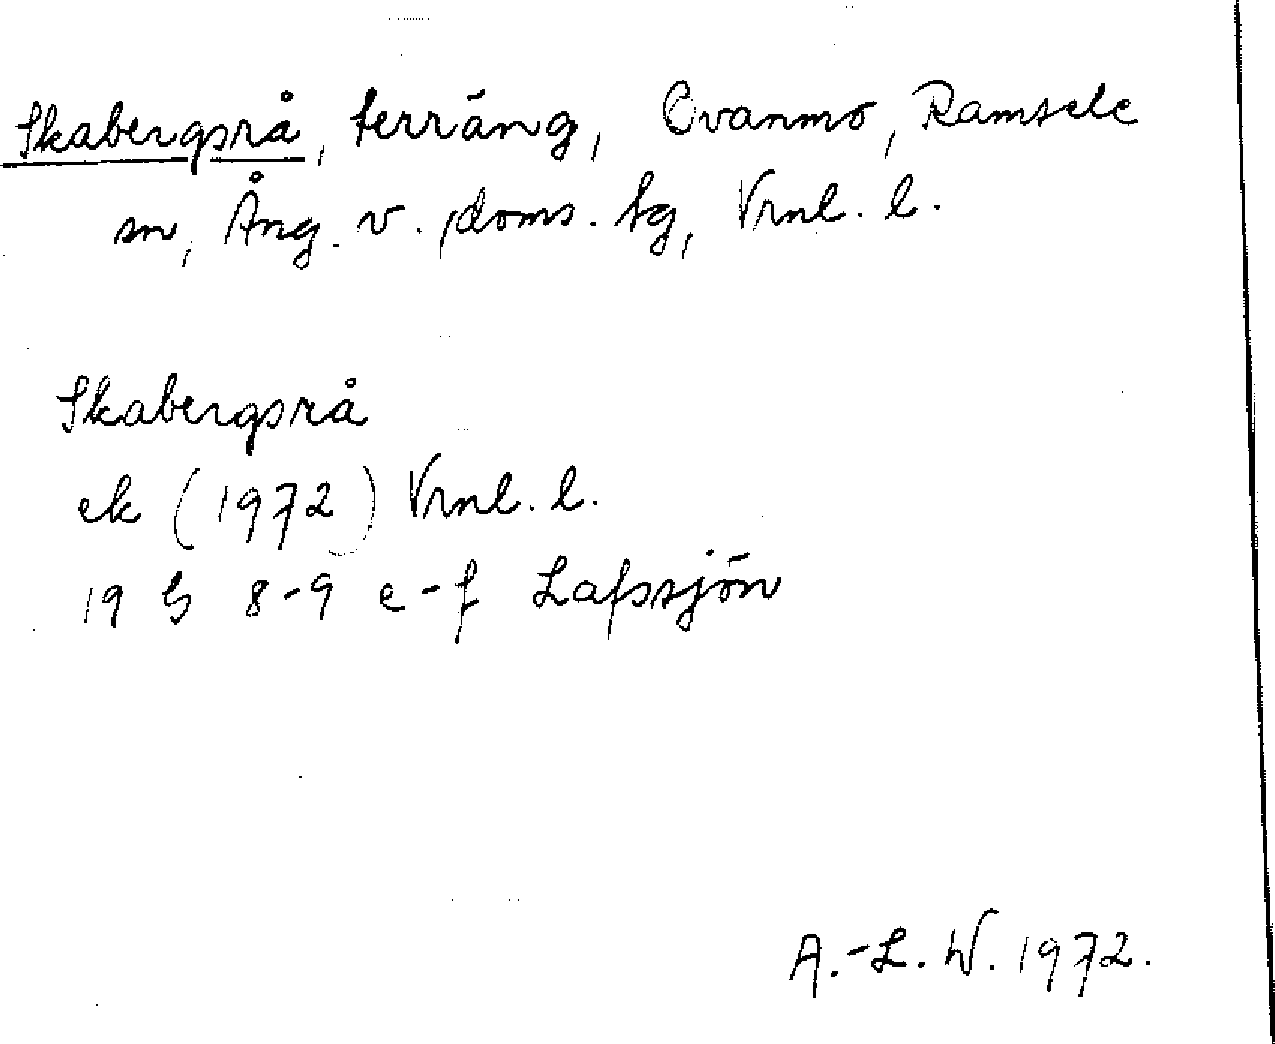 Skabergsrå, terräng, Ovanmo, Ramsele
sn, Ång. v. doms. tg, Vrnl. l.
Skabergsrå
ek (1972) Vrnl. l.
19 G 8-9 e-f Lafssjön
A.-L. W. 1972.